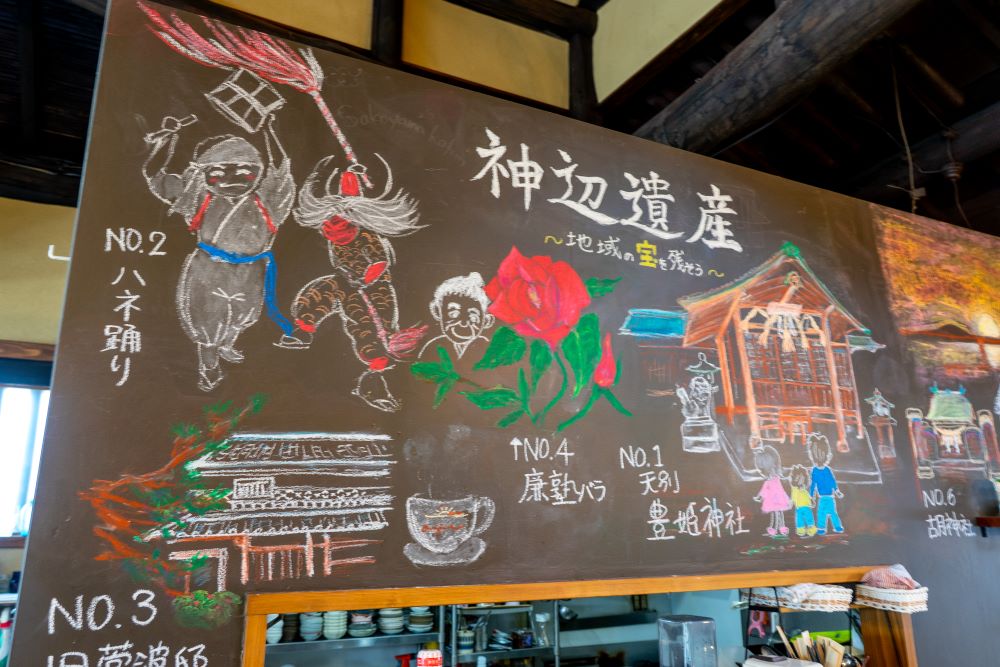 神辺遺産
～地域の宝を残そう～
NO.2
ハネ踊り
↑NO.4
廉塾バラ
NO.1
天別
豊姫神社
NO.6
胡神社
NO.3
旧菅波邸